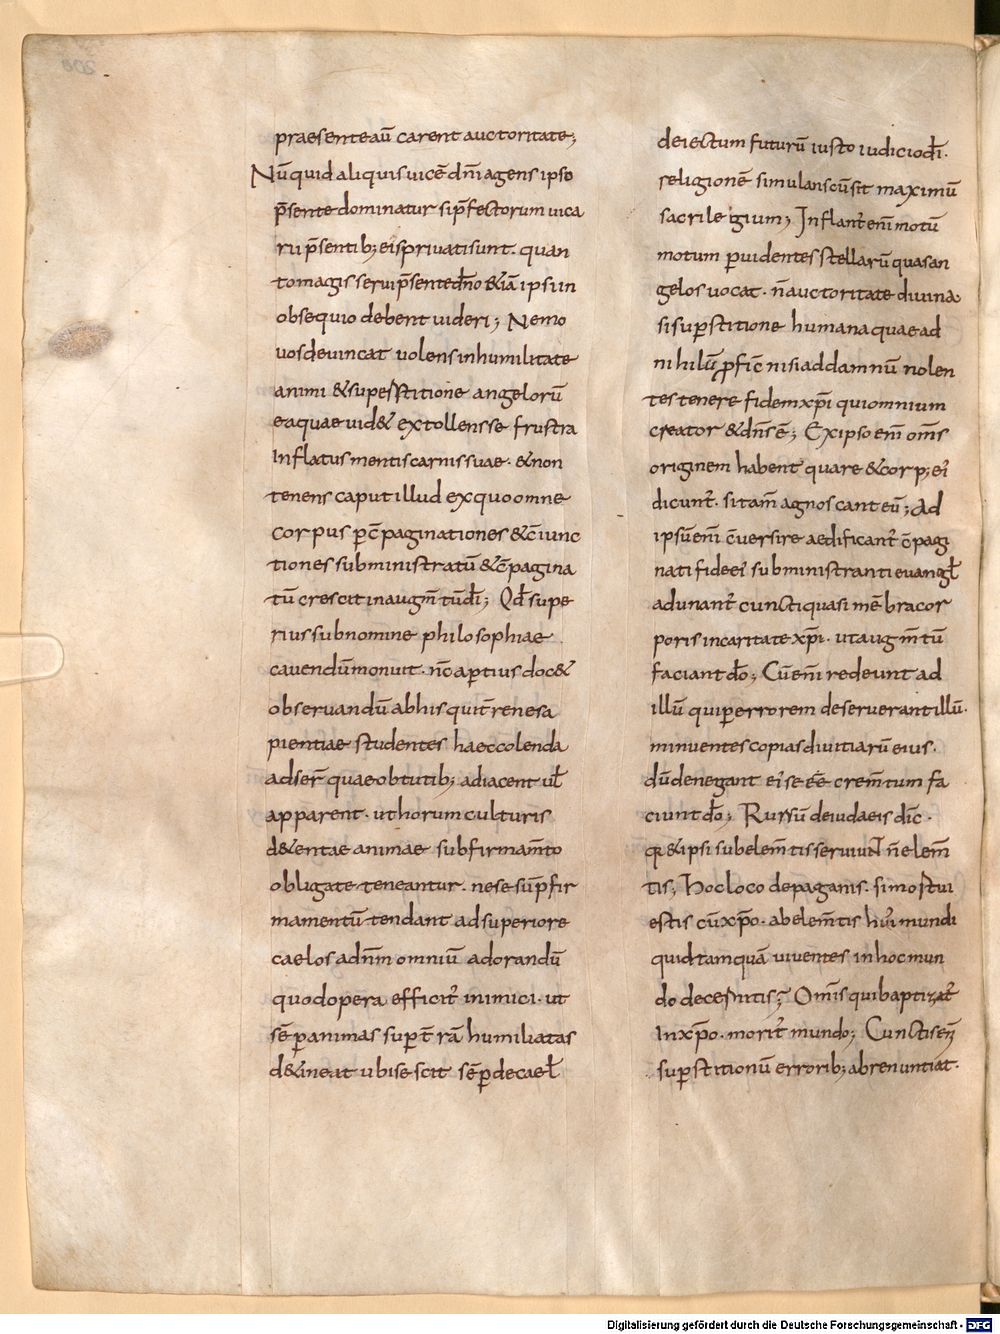 praesenteaū carent auctoritate;
Nūquid aliquis uicē dn̄i agens ipso
p̄sente dominatur si p̄fectorum uica
rii p̄sentib; eis priuati sunt. quan
to magis serui p̄sente dn̄o &iā ipsi in
obsequio debent uideri; Nemo
uos deuincat uolens in humilitate
animi & superstitione angelorū
ea quae uid& extollens se frustra
Inflatus mentis carnis suae. & non
tenens caput illud ex quo omne
corpus p c̄paginationes & c̄iunc
tiones subministratū & c̄pagina
tū crescit in augm̄tū di̅; Qd̄ supe
rius sub nomine philosophiae
cauendū monuit. nc̄ apertius doc&
obseruandū ab his qui t̄renae sa
pientiae studentes haec colenda
adser̄ quae obtutib; adiacent ul̄
apparent. ut horum culturis
d&entae animae sub firmam̄to
obligate teneantur. ne se sup̄ fir
mamentū tendant ad superiore
caelos ad dn̄m omniū adorandū
quod opera efficit̄ inimici. ut
sēp animas sup t̄rā humiliatas
d&ineat ubi se scit sēp de cael̄
deiectum futurū iusto iudicio di̅.
religionē simulans cū sit maximū
sacrilegium; Inflant̄ eni̅ motū
motum puidentes stellarū quas an
gelos uocat. n̄ auctoritate diuina
si superstitione humana quae ad
nihilū proficit nisi ad damnū nolen
tes tenere fidem xp̄i qui omnium
creator & dn̄s ē; Ex ipso eni̅ om̅s
originem habent quare & corp; ei
dicunt̄. si tam̄ agnoscant eū; Ad
ipsū eni̅ c̄uersi re aedificant̄ c̄pagi
nati fide ei subministranti euangl̄
adunant̄ cuncti quasi mēbra cor
poris in caritate xp̄i. ut augm̄tū
faciant do̅; Cū eni̅ redeunt ad
illū qui per errorem deseruerant illū.
minuentes copias diuitiarū eius.
dū denegant ei se eē crem̄tum fa
ciunt do̅; Rursū de iudaeis dic̄.
qr & ipsi sub elem̄tis seruiuNT n̄ elem̄
tis, Hoc loco de paganis. si mortui
estis cū xp̄o. ab elem̄tis hui mundi
quid tamquā uiuentes in hoc mun
do decernitis; Om̅is qui baptizat̄
In xp̄o. morit̄ mundo; Cunctis eni̅
superstitionū errorib; abrenuntiat.
Digitalisierung gefördert durch die Deutsche Forschungsgemeinschaft - DFG